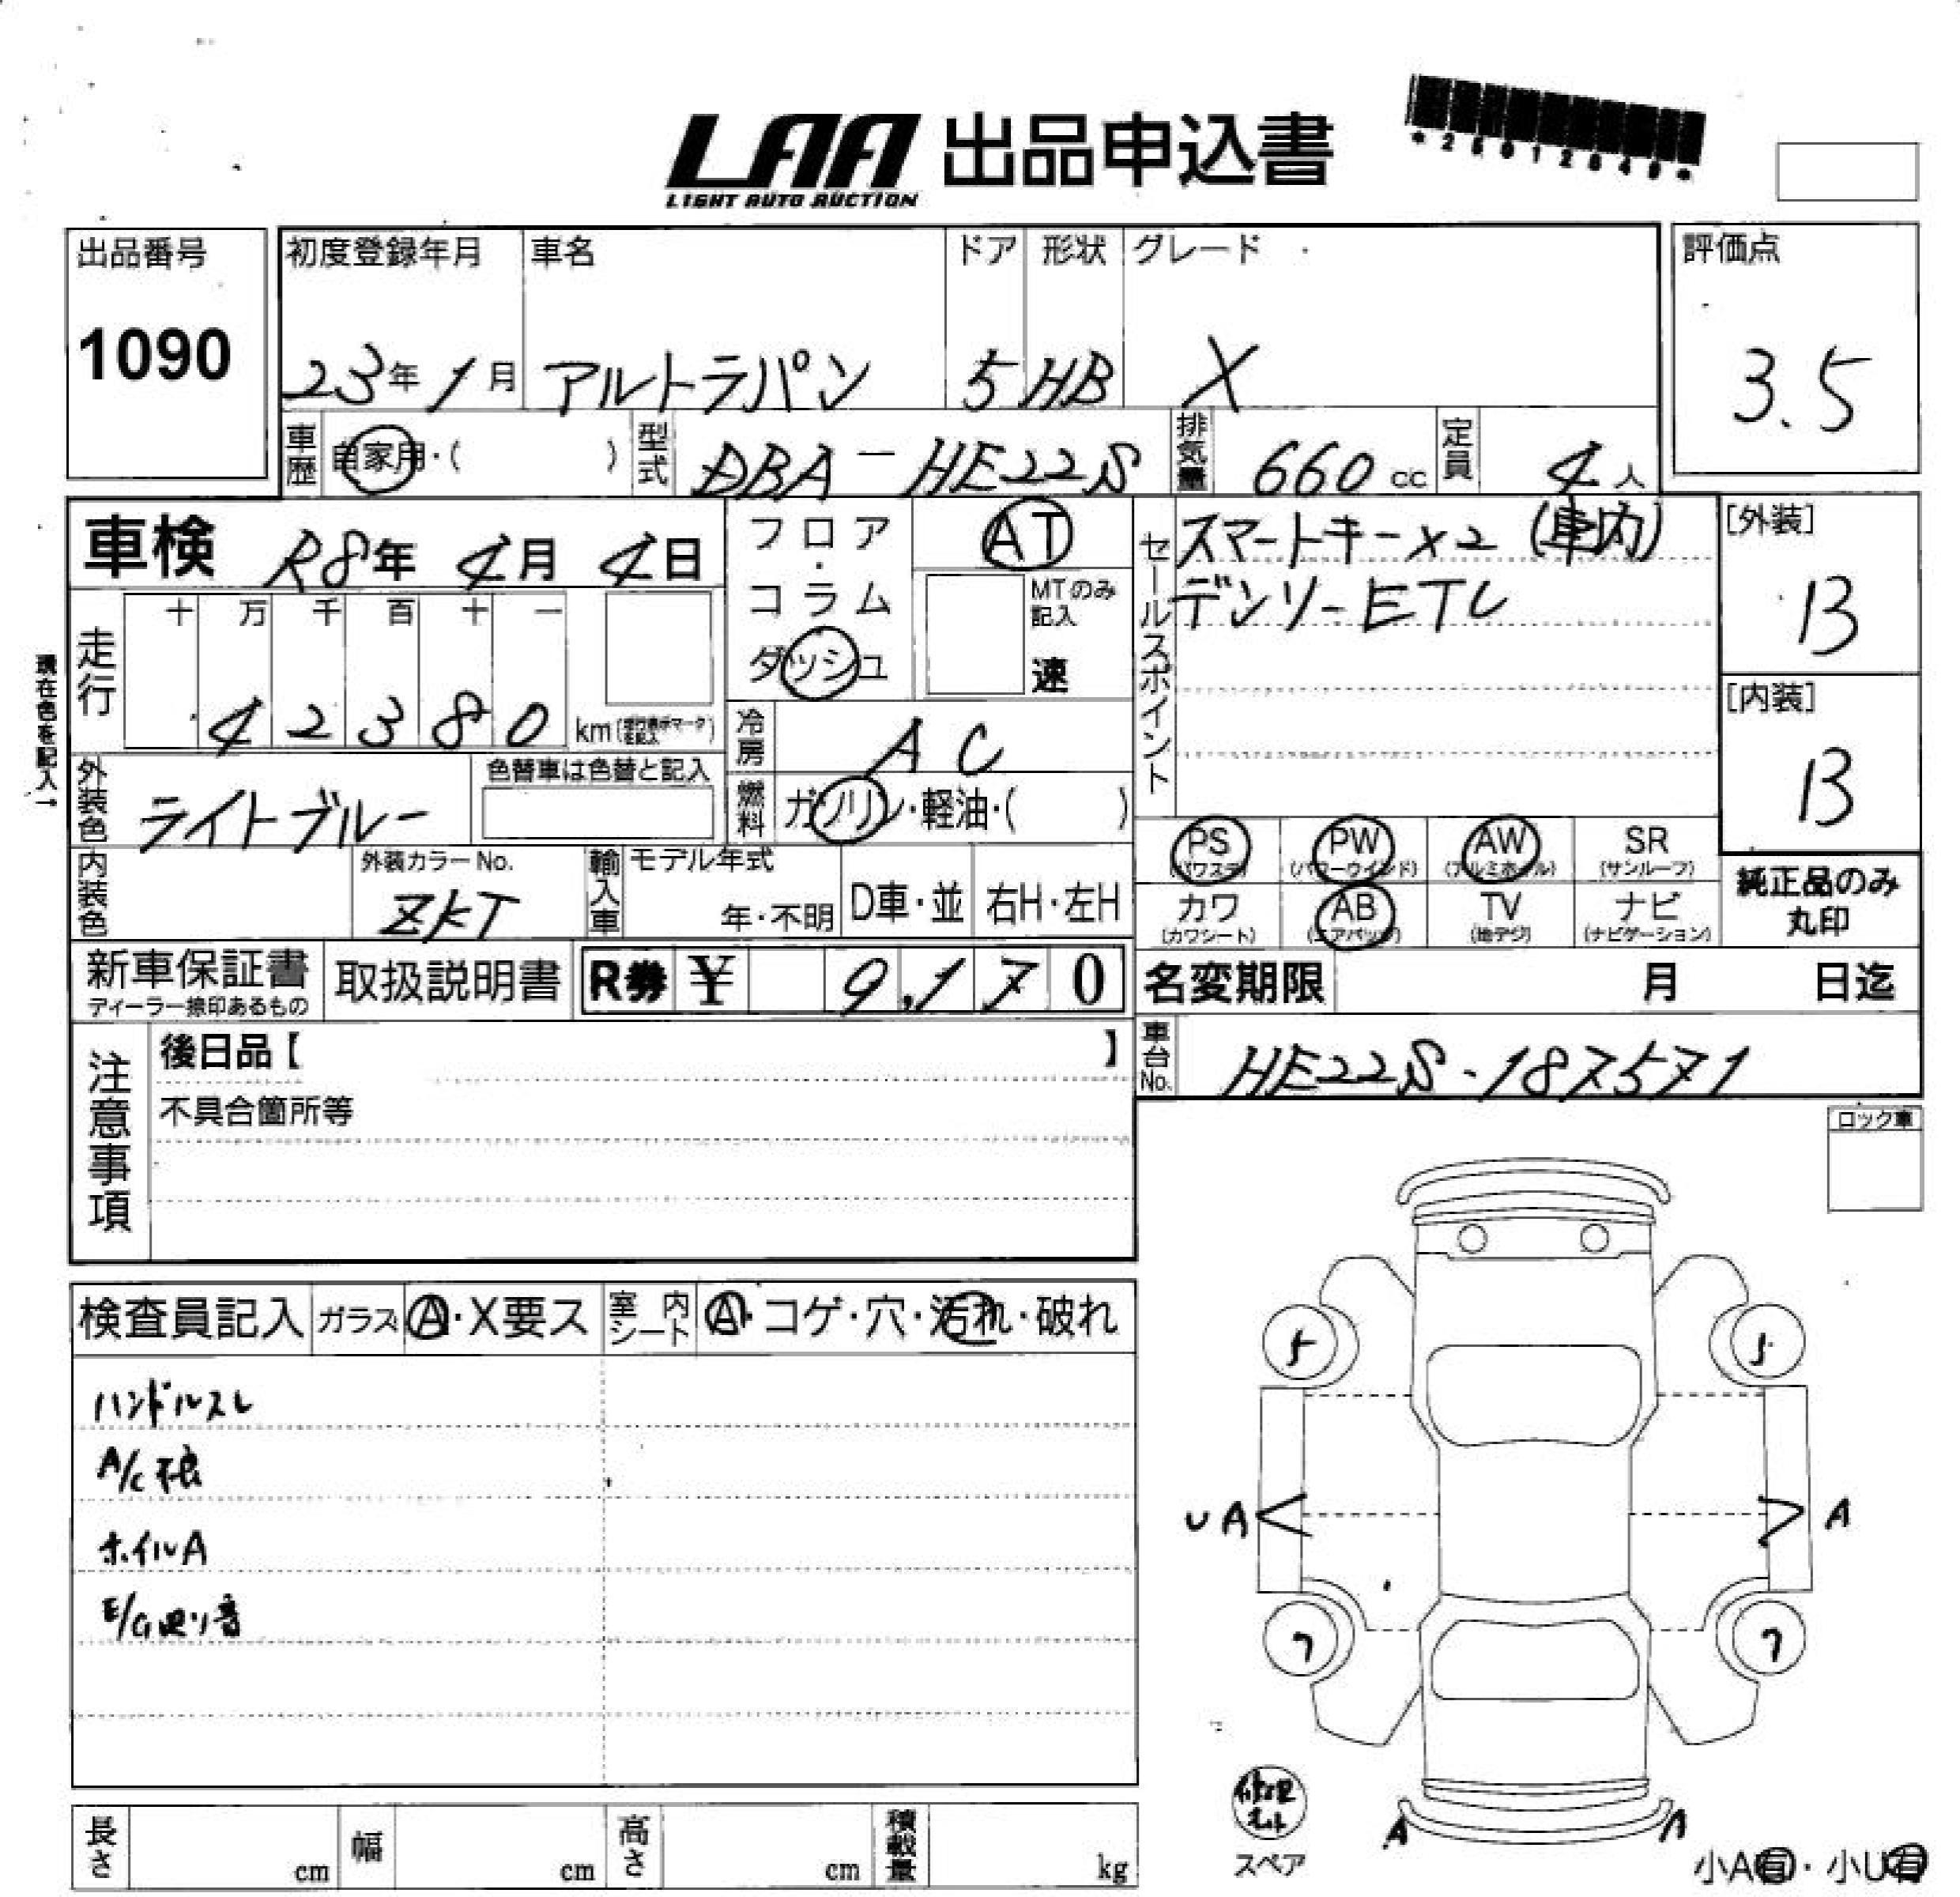 LAA 出品申込書
LIGHT AUTO AUCTION
出品番号 初度登録年月 車名 ドア 形状 グレード 評価点
1090 23年1月 アルトラパン 5 HB X 3.5
車歴 自家用・( ) 型式 DBA-HE22S 排気量 660cc 定員 4人
車検 R8年 4月 4日
フロア・コラム ダッシュ
AT
MTのみ記入 速
セールスポイント スマートキー×2 (車内)
デンソーETC
[外装] B
[内装] B
走行 十 万 千 百 十 一
42380 km
現在色を記入→
冷房 AC
外装色 ライトブルー 色替車は色替と記入
燃料 ガソリン・軽油・( )
PS (パワステ) PW (パワーウインド) AW (アルミホイル) SR (サンルーフ)
カワ (カワシート) AB (エアバッグ) TV (地デジ) ナビ (ナビゲーション)
純正品のみ丸印
内装色 外装カラーNo. ZKT 輸入車 モデル年式 年・不明 D車・並 右H・左H
新車保証書 ディーラー捺印あるもの 取扱説明書 R券 ¥ 9,170
名変期限 月 日迄
車台No. HE22S-187571
注意事項 後日品【 】
不具合箇所等
ロック車
検査員記入 ガラス A・X要ス 室内シート A・コゲ・穴・汚れ・破れ
ハンドルスレ
A/C不良
ホイルA
E/G廻り音
5 5
UA A
7 7
修理キット
スペア
A A
小A有・小U有
長さ cm 幅 cm 高さ cm 積載量 kg